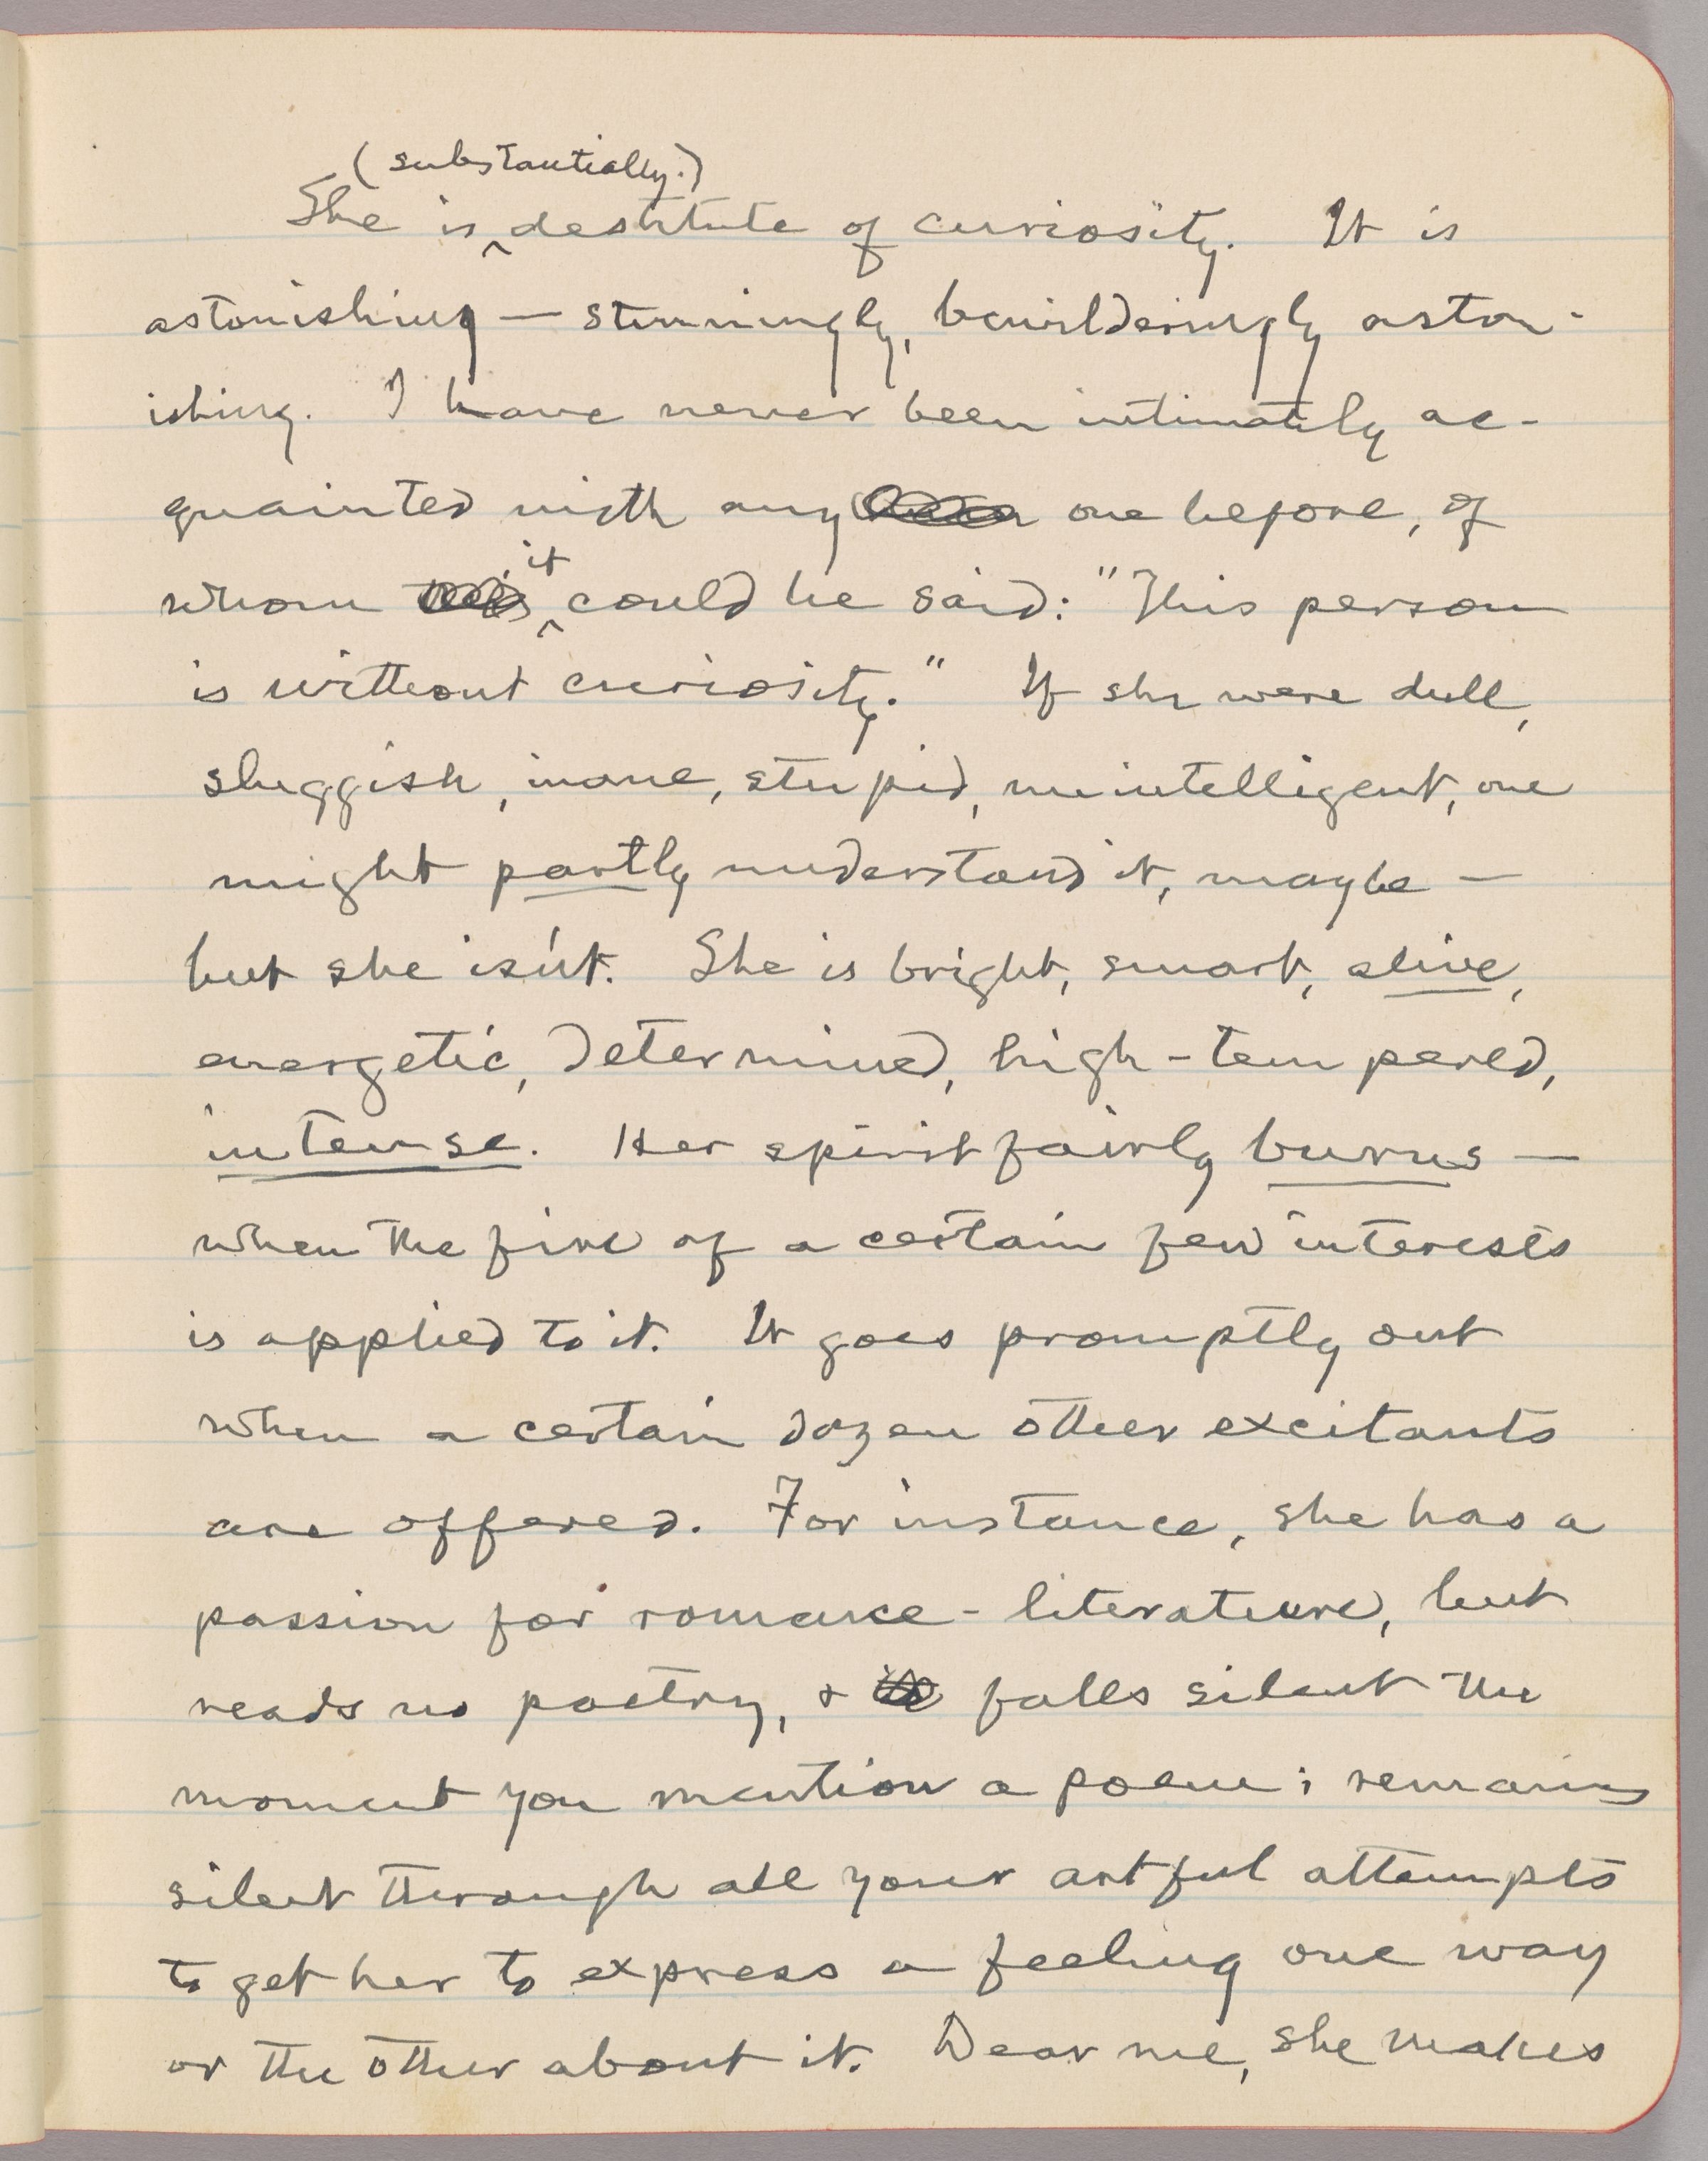 (substantially.)
She is ‸ destitute of curiosity. It is
astonishing — stunningly, bewilderingly aston-
ishing. I have never been intimately ac-
quainted with any one before, of
it
whom ‸ could be said: "This person
is without curiosity." If she were dull,
sluggish, inane, stupid, unintelligent, one
might partly understand it, maybe —
but she isn't. She is bright, smart, alive,
energetic, determined, high-tempered,
intense. Her spirit fairly burns —
when the fire of a certain few interests
is applied to it. It goes promptly out
when a certain dozen other excitants
are offered. For instance, she has a
passion for romance-literature, but
reads no poetry, & falls silent the
moment you mention a poem; remains
silent through all your artful attempts
to get her to express a feeling one way
or the other about it. Dear me, she makes